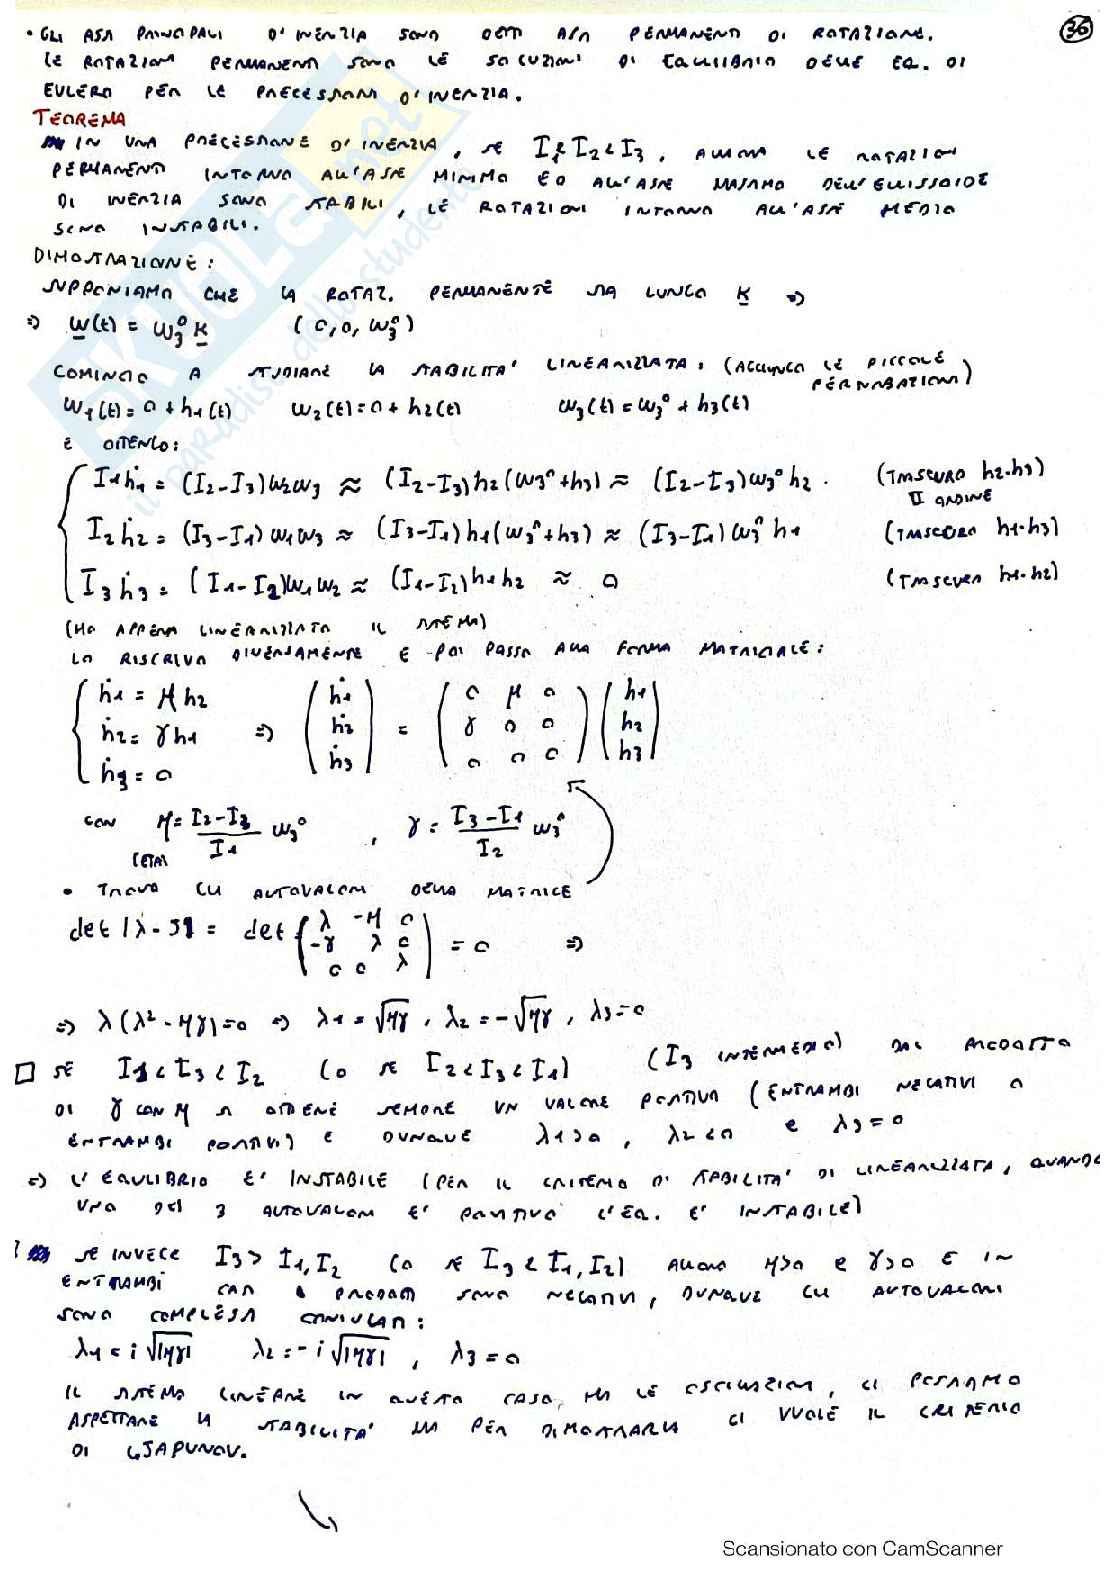 36
• GLI ASSI PRINCIPALI D'INERZIA SONO DETTI ASSI PERMANENTI DI ROTAZIONE.
LE ROTAZIONI PERMANENTI SONO LE SOLUZIONI DI EQUILIBRIO DELLE EQ. DI
EULERO PER LE PRECESSIONI D'INERZIA.
TEOREMA
IN UNA PRECESSIONE D'INERZIA, SE I1 < I2 < I3, ALLORA LE ROTAZIONI
PERMANENTI INTORNO ALL'ASSE MINIMO ED ALL'ASSE MASSIMO DELL'ELLISSOIDE
DI INERZIA SONO STABILI, LE ROTAZIONI INTORNO ALL'ASSE MEDIO
SONO INSTABILI.
DIMOSTRAZIONE:
SUPPONIAMO CHE LA ROTAZ. PERMANENTE SIA LUNGO K ⇒
⇒ w(t) = w3° K (0, 0, w3°)
COMINCIO A STUDIARE LA STABILITA' LINEARIZZATA: (AGGIUNGO LE PICCOLE
PERTURBAZIONI)
w1(t) = 0 + h1(t) w2(t) = 0 + h2(t) w3(t) = w3° + h3(t)
E OTTENGO:
I1ḣ1 = (I2-I3)w2w3 ≈ (I2-I3)h2(w3°+h3) ≈ (I2-I3)w3°h2. (TRASCURO h2·h3)
II ORDINE
I2ḣ2 = (I3-I1)w1w3 ≈ (I3-I1)h1(w3°+h3) ≈ (I3-I1)w3°h1 (TRASCURO h1·h3)
I3ḣ3 = (I1-I2)w1w2 ≈ (I1-I2)h1h2 ≈ 0 (TRASCURO h1·h2)
(HO APPENA LINEARIZZATO IL SISTEMA)
LO RISCRIVO DIVERSAMENTE E POI PASSO ALLA FORMA MATRICIALE:
ḣ1 = μh2 (ḣ1) (0 μ 0) (h1)
ḣ2 = γh1 ⇒ (ḣ2) = (γ 0 0) (h2)
ḣ3 = 0 (ḣ3) (0 0 0) (h3)
CON μ = (I2-I3)/I1 w3°, γ = (I3-I1)/I2 w3°
(ETA)
• TROVO GLI AUTOVALORI DELLA MATRICE
det |λ - J| = det (λ -μ 0
-γ λ 0
0 0 λ) = 0 ⇒
⇒ λ(λ² - μγ) = 0 ⇒ λ1 = √μγ, λ2 = -√μγ, λ3 = 0
□ SE I1 < I3 < I2 (O SE I2 < I3 < I1) (I3 INTERMEDIO) DAL PRODOTTO
DI γ CON μ SI OTTIENE SEMPRE UN VALORE POSITIVO (ENTRAMBI NEGATIVI O
ENTRAMBI POSITIVI) E DUNQUE λ1 > 0, λ2 < 0 E λ3 = 0
⇒ L'EQUILIBRIO E' INSTABILE (PER IL CRITERIO DI STABILITA' DI LINEARIZZATA, QUANDO
UNO DEI 3 AUTOVALORI E' POSITIVO L'EQ. E' INSTABILE)
SE INVECE I3 > I1, I2 (O SE I3 < I1, I2) ALLORA μ>0 E γ>0 E IN
ENTRAMBI CASI I PRODOTTI SONO NEGATIVI, DUNQUE GLI AUTOVALORI
SONO COMPLESSI CONIUGATI:
λ1 = i √|μγ| λ2 = -i √|μγ|, λ3 = 0
IL SISTEMA LINEARE IN QUESTO CASO, HA LE OSCILLAZIONI, CI POSSIAMO
ASPETTARE LA STABILITA' MA PER DIMOSTRARLA CI VUOLE IL CRITERIO
DI LJAPUNOV.
SKUOLA.net
il paradiso dello studente
Scansionato con CamScanner